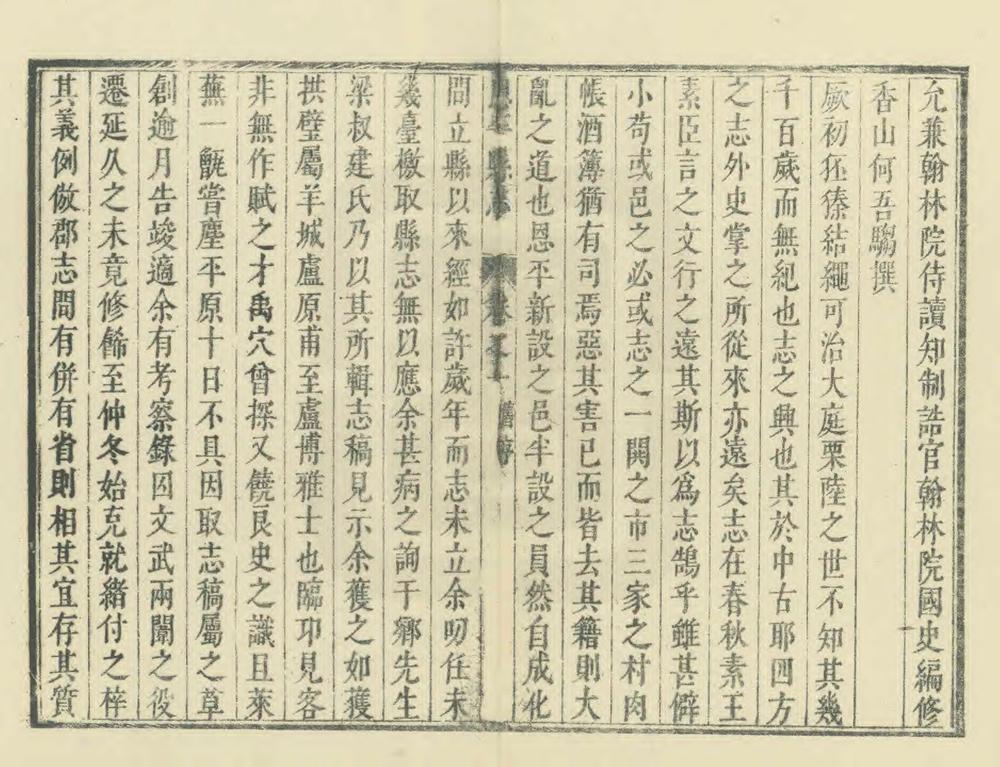 允兼翰林院侍讀知制誥官翰林院國史編修
香山何吾騶撰
厥初狉獉結繩可治大庭栗陸之世不知其幾
千百歲而無紀也志之興也其於中古耶四方
之志外史掌之所從來亦遠矣志在春秋素王
素臣言之文行之遠其斯以爲志鵠乎雖甚僻
小苟或邑之必或志之一閧之市三家之村肉
帳酒簿猶有司焉惡其害已而皆去其籍則大
亂之道也恩平新設之邑半設之員然自成化
恩平縣志 卷之 舊序
間立縣以來經如許歲年而志未立余叨任未
幾臺檄取縣志無以應余甚病之詢于鄉先生
梁叔建氏乃以其所輯志稿見示余獲之如獲
拱璧屬羊城盧原甫至盧博雅士也臨卭見客
非無作賦之才禹穴曾探又饒良史之識且萊
蕪一甑嘗塵平原十日不具因取志稿屬之草
創逾月告竣適余有考察錄囚文武兩闈之役
遷延久之未竟修餙至仲冬始克就緒付之梓
其義例倣郡志間有併有省則相其宜存其質